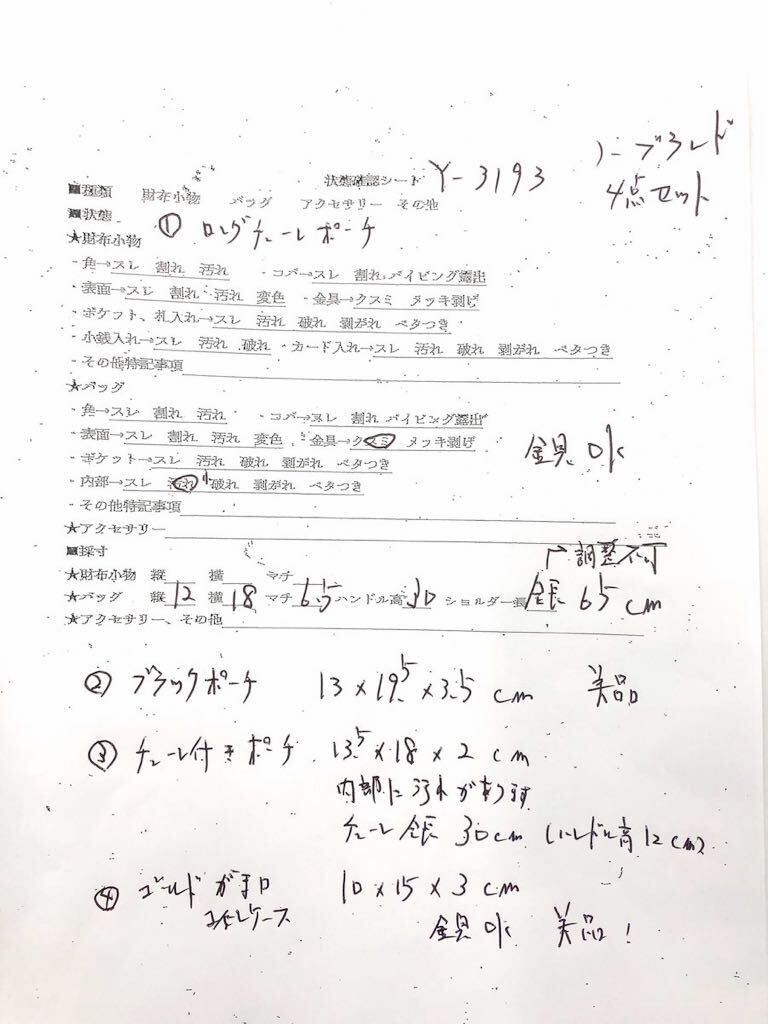 状態確認シート Y-3193 ノーブランド
4点セット
■種類 財布小物 バッグ アクセサリー その他
■状態 ① ロングチェーンポーチ
★財布小物
・角→スレ 割れ 汚れ ・コバ→スレ 割れ パイピング露出
・表面→スレ 割れ 汚れ 変色 ・金具→クスミ メッキ剥げ
・ポケット、札入れ→スレ 汚れ 破れ 剥がれ ベタつき
・小銭入れ→スレ 汚れ 破れ ・カード入れ→スレ 汚れ 破れ 剥がれ ベタつき
・その他特記事項
★バッグ
・角→スレ 割れ 汚れ ・コバ→スレ 割れ パイピング露出
・表面→スレ 割れ 汚れ 変色 ・金具→クスミ メッキ剥げ 金具OK
・ポケット→スレ 汚れ 破れ 剥がれ ベタつき
・内部→スレ 汚れ 小 破れ 剥がれ ベタつき
・その他特記事項
★アクセサリー
■採寸 調整不可
★財布小物 縦 横 マチ
★バッグ 縦 12 横 18 マチ 6.5 ハンドル高 30 ショルダー長 全長 65 cm
★アクセサリー、その他
② ブラックポーチ 13×19.5×3.5 cm 美品
③ チェーン付きポーチ 13.5×18×2 cm
内部に汚れがあります
チェーン全長 30cm (ハンドル高12cm)
④ ゴールドがま口 10×15×3 cm
ケース 金具OK 美品!